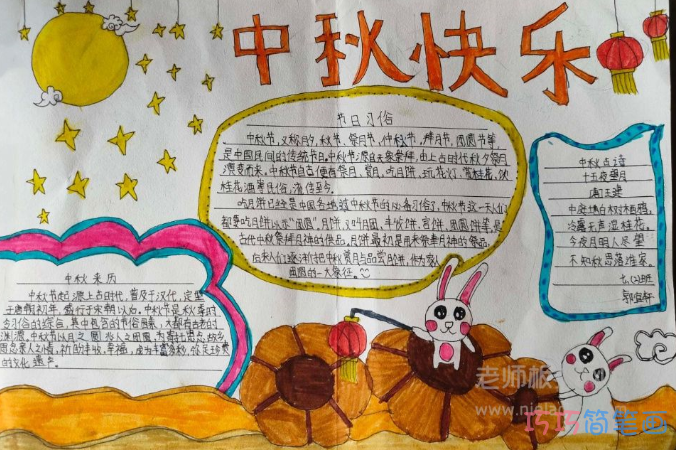 中秋快乐
节日习俗
中秋节,又称月夕、秋节、祭月节、仲秋节、拜月节、团圆节等,
是中国民间的传统节日。中秋节源自天象崇拜,由上古时代秋夕祭月
演变而来。中秋节自古便有祭月、赏月、吃月饼、玩花灯、赏桂花、饮
桂花酒等民俗,流传至今。
吃月饼已经是中国各地过中秋节的必备习俗了,中秋节这一天人们
都要吃月饼以示“团圆”。月饼,又叫月团、丰收饼、宫饼、团圆饼等,是
古代中秋祭拜月神的供品。月饼最初是用来祭奉月神的祭品,
后来人们逐渐把中秋赏月与品尝月饼,作为家人
团圆的一大象征。
中秋古诗
十五夜望月
王建
中庭地白树栖鸦,
冷露无声湿桂花。
今夜月明人尽望
不知秋思落谁家。
中秋来历
中秋节起源上古时代,普及于汉代,定型
于唐朝初年,盛行于宋朝以后。中秋节是秋季时
令习俗的综合,其中包含的节俗因素,大都有古老的
渊源。中秋节以月之圆兆人之团圆,为寄托思念故乡
思念亲人之情,祈盼丰收、幸福,成为丰富多彩、弥足珍贵
的文化遗产。
老师板
www.niela
巧巧简笔画